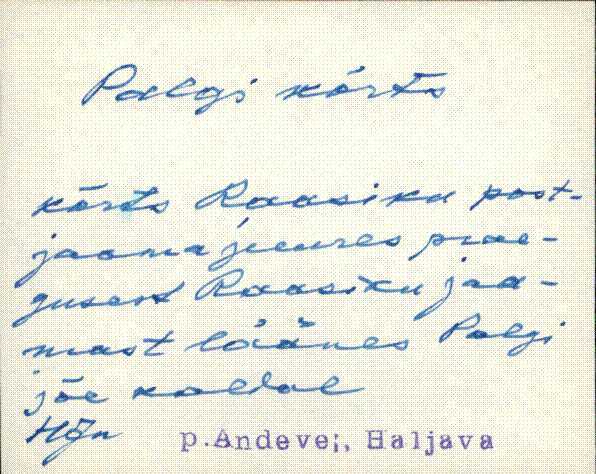 Palgi kõrts
kõrts Raasiku post-
jaama juures prae-
gusest Raasiku jaa-
mast läänes Palgi
jõe kaldal
HJn p. Andevei, Haljava